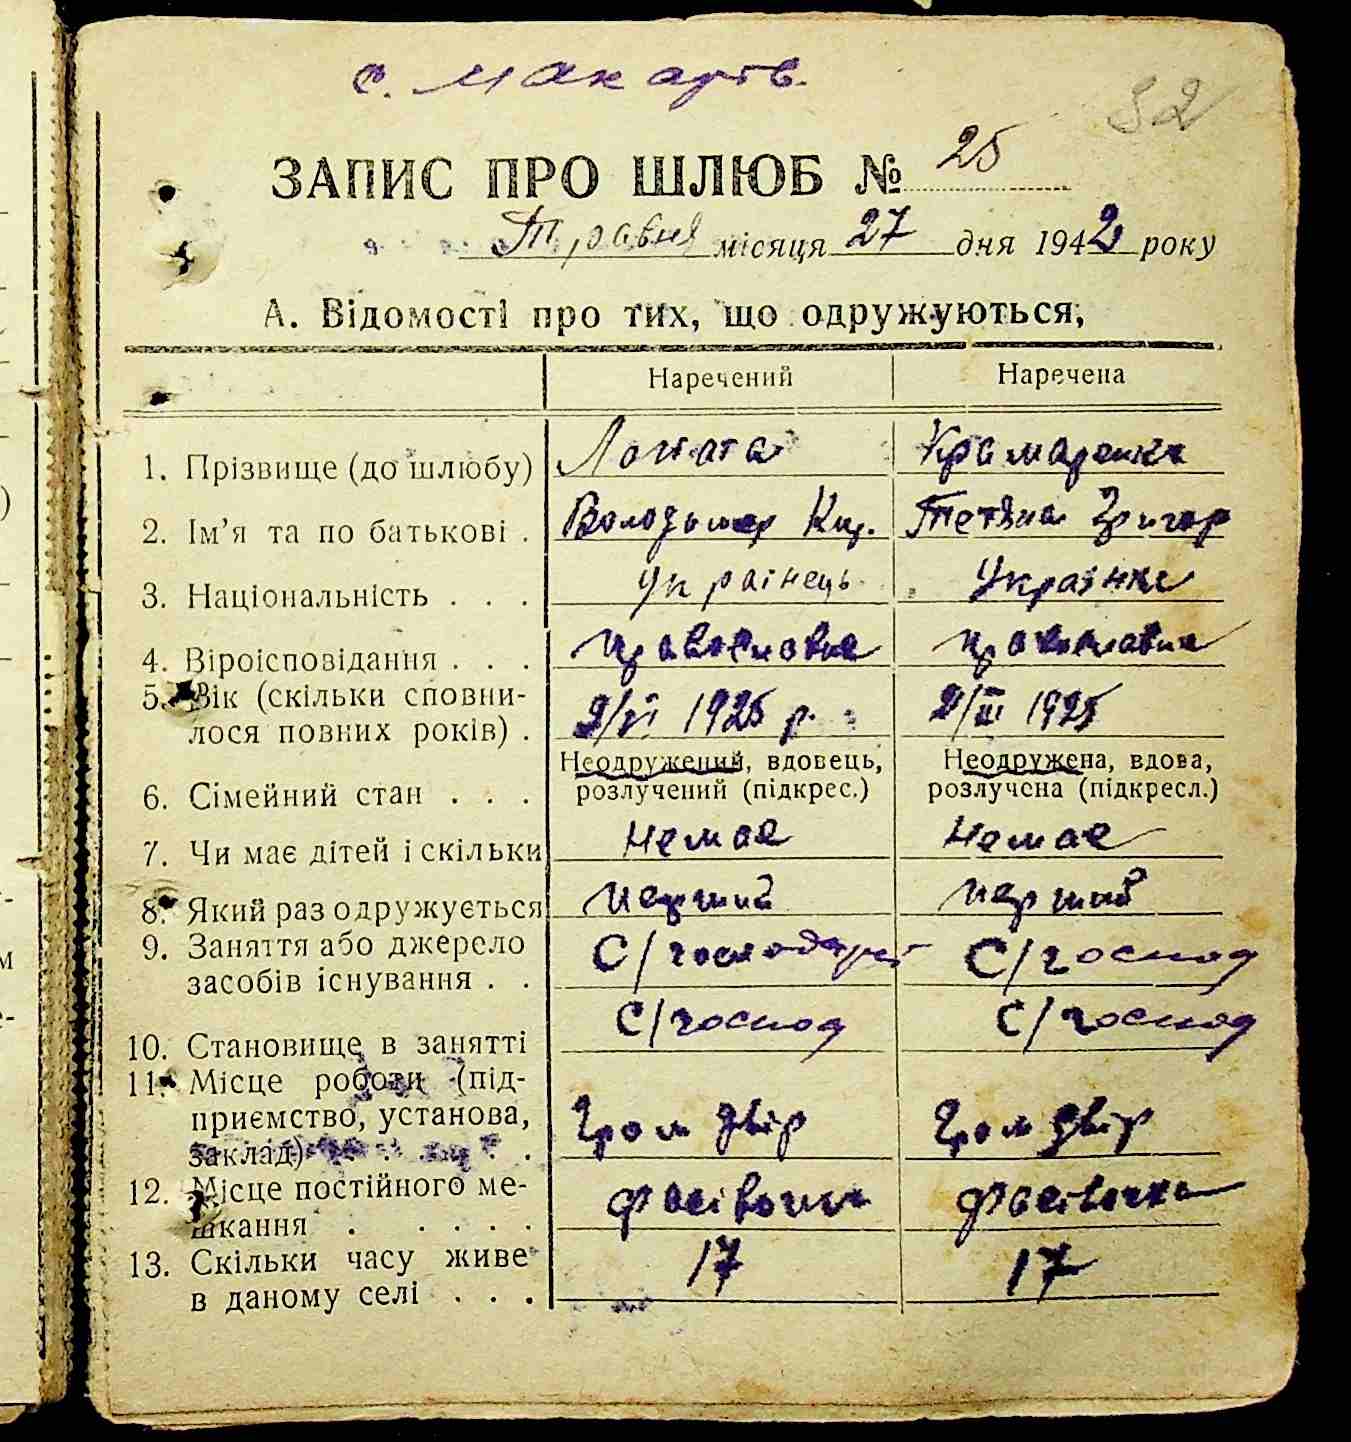 с. Макарів.
52
ЗАПИС ПРО ШЛЮБ № 25
Травня місяця 27 дня 1942 року
А. Відомості про тих, що одружуються,
Наречений Наречена
1. Прізвище (до шлюбу) Лопата Крамаренко
2. Ім'я та по батькові . Володимер Кир. Тетяна Григор
3. Національність . . . Українець Українка
4. Віроісповідання . . . православне православне
5. Вік (скільки сповни-
лося повних років) . 2/VI 1925 р. 2/III 1925
Неодружений, вдовець, Неодружена, вдова,
6. Сімейний стан . . . розлучений (підкрес.) розлучена (підкресл.)
7. Чи має дітей і скільки Немає Немає
8. Який раз одружується перший перший
9. Заняття або джерело
засобів існування . . С/господар С/господ
10. Становище в занятті С/господ С/господ
11. Місце роботи (під-
приємство, установа,
заклад) . . . . . Гром двір Гром двір
12. Місце постійного ме-
шкання . . . . . Фасівочка Фасівочка
13. Скільки часу живе
в даному селі . . . 17 17